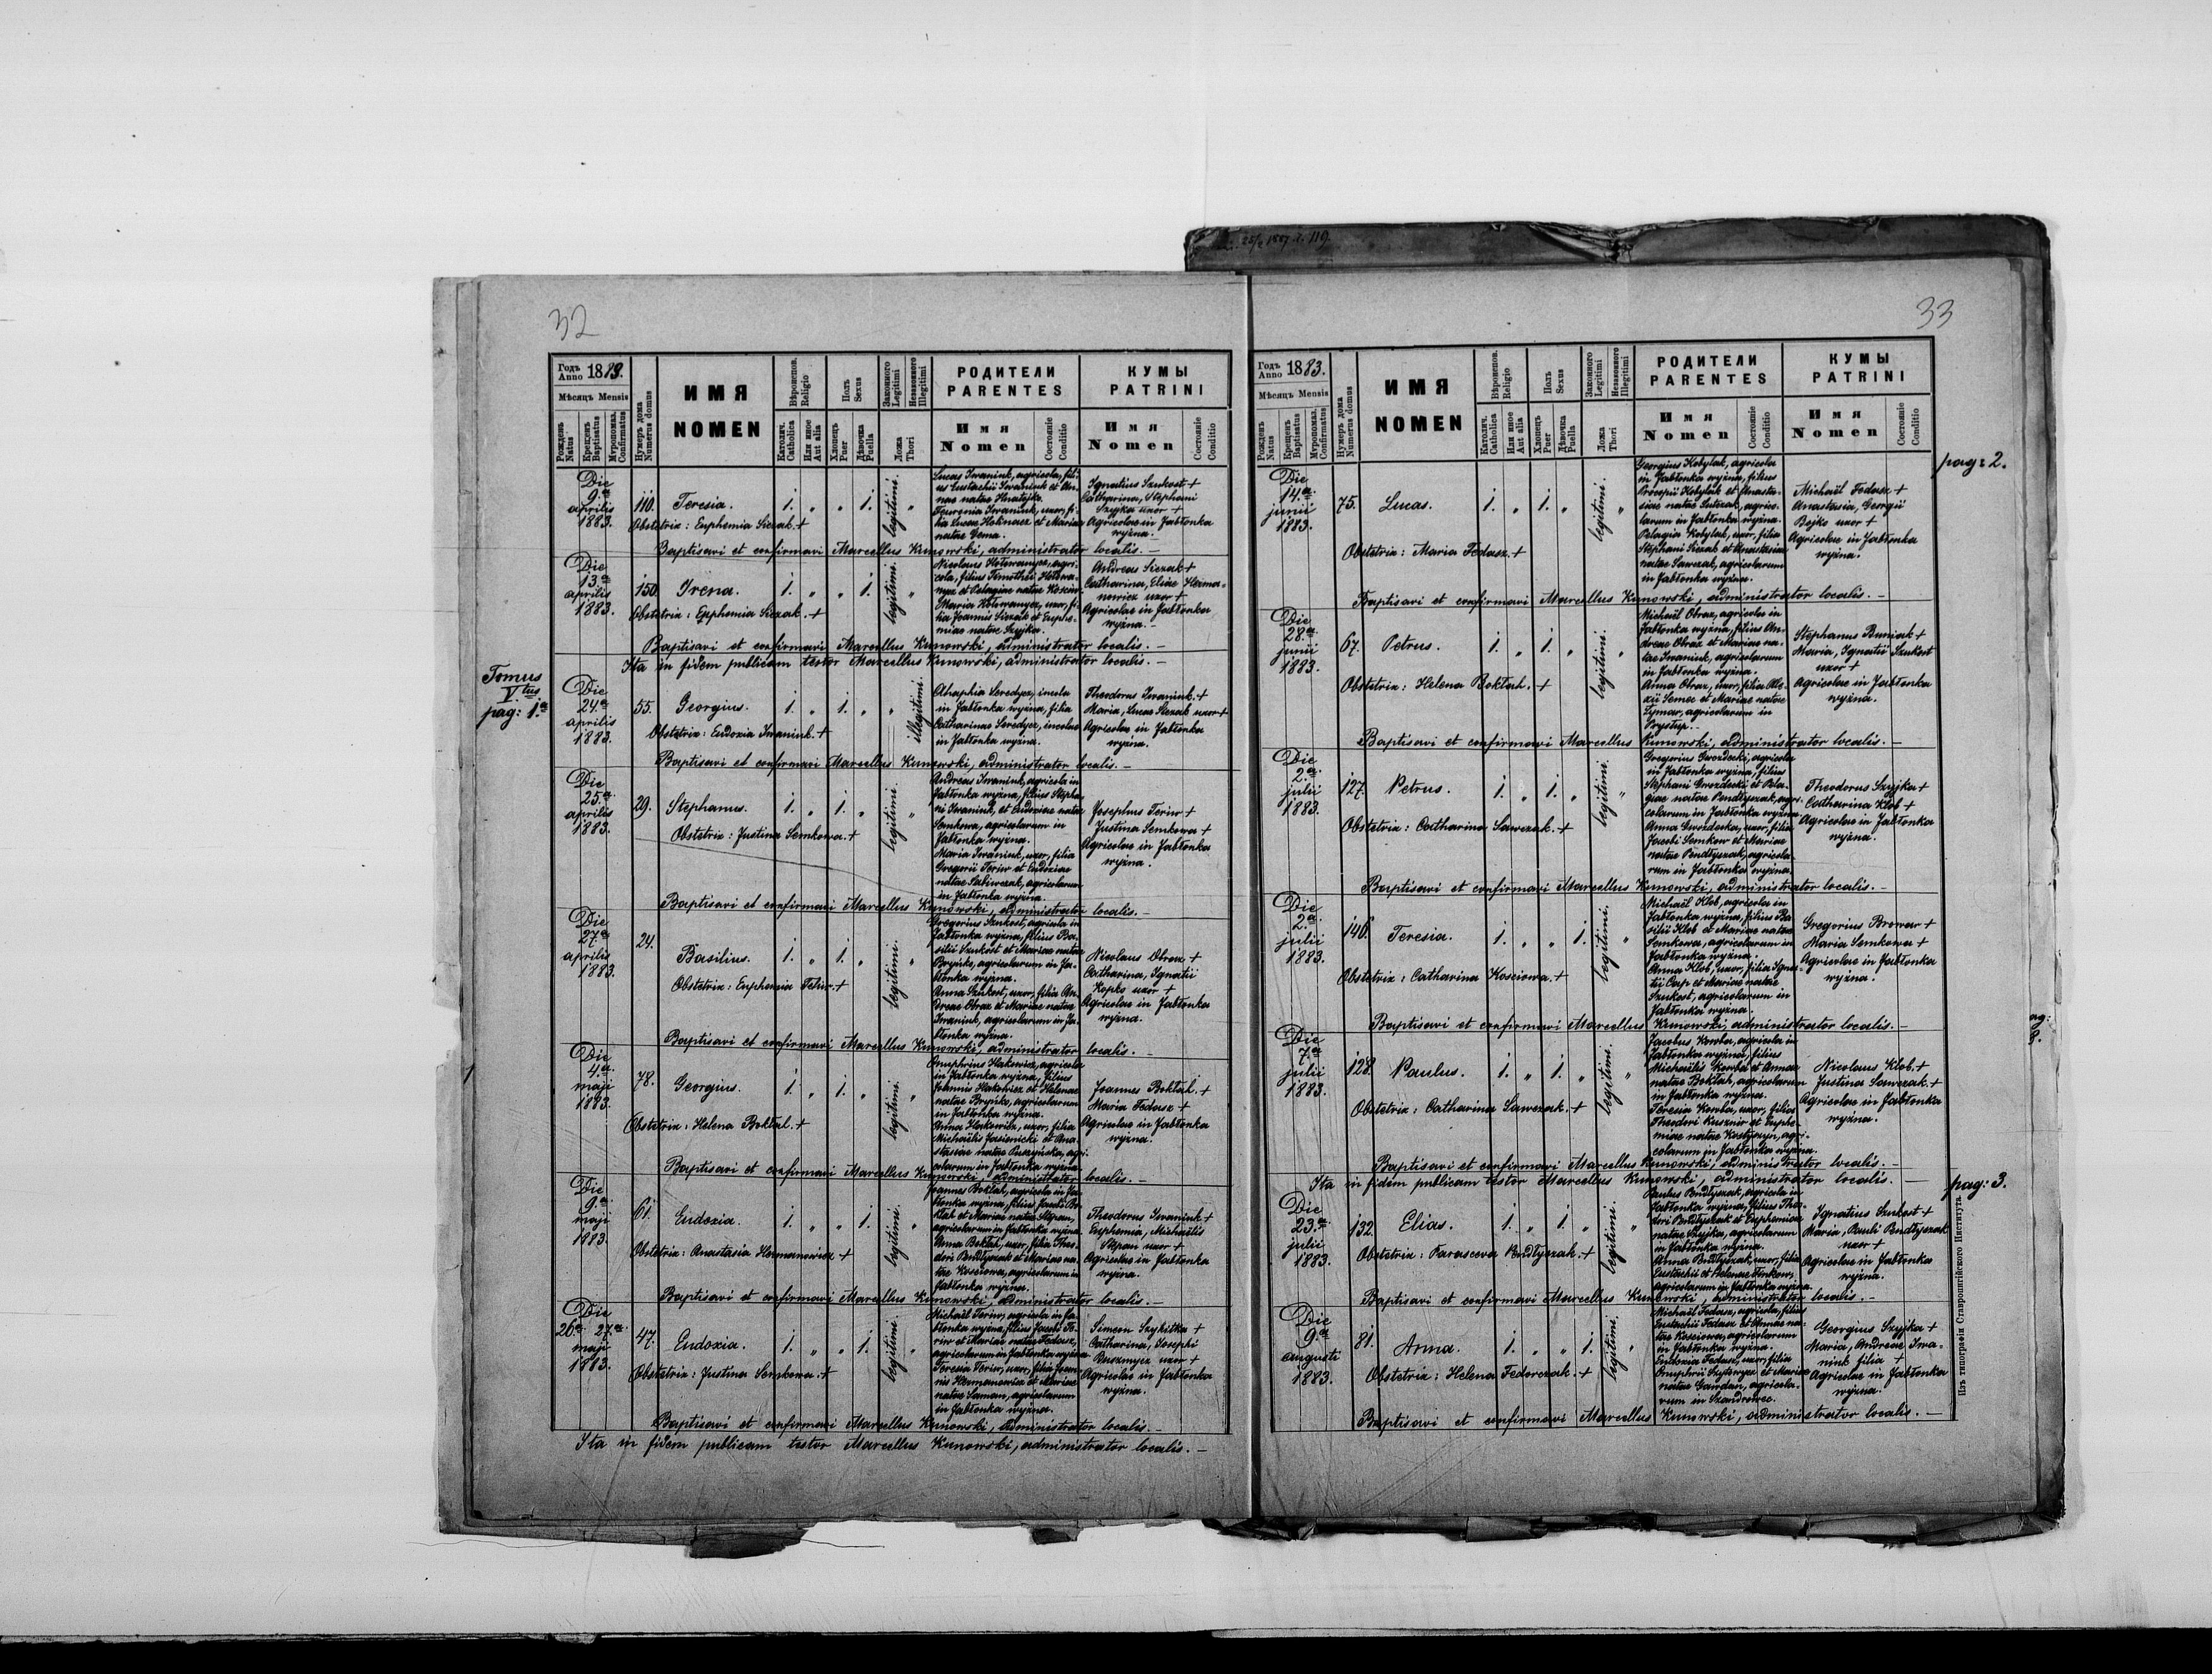 32
Годъ Anno 1883.
Мѣсяцъ Mensis
Рожденъ Natus
Крещенъ Baptisatus
Мѵропомаз. Confirmatus
Нумеръ дома Numerus domus
ИМЯ
NOMEN
Вѣроиспов. Religio
Католич. Catholica
Или иное Aut alia
Полъ Sexus
Хлопецъ Puer
Дѣвочка Puella
Законного Legitimi
Незаконного Illegitimi
Ложа Thori
РОДИТЕЛИ
PARENTES
Имя Nomen
Состояніе Conditio
КУМЫ
PATRINI
Имя Nomen
Состояніе Conditio
Die
9.a
aprilis
1883.
110. Teresia. 1. „ „ 1. legitimi. „
Obstetrix: Euphemia Siczak. +
Lucas Iwaniuk, agricola, fili-
us Eustachii Iwaniuk et An-
nae natae Hnatejko.
Iwaniuk, uxor, fi-
lia Lucae et Mariae
natae Dema.
Ignatius Szukost +
Catharina, Stephani
Szyjka uxor +
Agricolae in Jabłonka
wyżna. -
Baptisavi et confirmavi Marcellus Kunowski, administrator localis. -
Die
13.a
aprilis
1883.
150. Irena. 1. „ „ 1. legitimi. „
Obstetrix: Euphemia Siczak. +
Nicolaus Hotowanycz, agri-
cola, filius Timothei Hotowa-
nycz et Pelagiae natae Kosciow.
Maria Hotowanycz, uxor, fi-
lia Joannis Siczak et Euphe-
miae natae Szyjka.
Andreas Siczak +
Catharina, Eliae Herma-
nowicz uxor +
Agricolae in Jabłonka
wyżna. -
Baptisavi et confirmavi Marcellus Kunowski, administrator localis. -
Ita in fidem publicam testor Marcellus Kunowski, administrator localis. -
Tomus
V.tus
pag: 1.a
Die
24.a
aprilis
1883.
55. Georgius. 1. „ 1. „ „ illegitimi.
Obstetrix: Eudoxia Iwaniuk. +
Ahaphia Seredycz, incola
in Jabłonka wyżna, filia
Catharinae Seredycz, incolae
in Jabłonka wyżna.
Theodorus Iwaniuk. +
Maria, Lucae Siczak uxor +
Agricolae in Jabłonka
wyżna.
Baptisavi et confirmavi Marcellus Kunowski, administrator localis. -
Die
25.a
aprilis
1883.
29. Stephanus. 1. „ 1. „ legitimi. „
Obstetrix: Justina Semkowa. +
Andreas Iwaniuk, agricola in
Jabłonka wyżna, filius Stepha-
ni Iwaniuk, et Eudoxiae natae
Semkowa, agricolarum in
Jabłonka wyżna.
Maria Iwaniuk, uxor, filia
Gregorii Feriw et Eudoxiae
natae agricolarum
in Jabłonka wyżna.
Josephus Feriw +
Justina Semkowa +
Agricolae in Jabłonka
wyżna.
Baptisavi et confirmavi Marcellus Kunowski, administrator localis. -
Die
27.a
aprilis
1883.
24. Basilius. 1. „ 1. „ legitimi. „
Obstetrix: Euphemia Feriw. +
Gregorius Szukost, agricola in
Jabłonka wyżna, filius Ba-
silii Szukost et Mariae natae
Bryńko, agricolarum in Ja-
błonka wyżna.
Anna Szukost, uxor, filia An-
dreae Obraz et Mariae natae
Iwaniuk, agricolarum in Ja-
błonka wyżna.
Nicolaus Obraz +
Catharina, Ignatii
Kopko uxor +
Agricolae in Jabłonka
wyżna.
Baptisavi et confirmavi Marcellus Kunowski, administrator localis. -
Die
4.a
maji
1883.
78. Georgius. 1. „ 1. „ legitimi. „
Obstetrix: Helena Boktah. +
Onuphrius Hakowicz, agricola
in Jabłonka wyżna, filius
Joannis Hakowicz et Helenae
natae Bryńko, agricolarum
in Jabłonka wyżna.
Anna Hakowicz, uxor, filia
Michaëlis Jasienicki et Ana-
stasiae natae Puszyńska, agri-
colarum in Jabłonka wyżna.
Joannes Boktah. +
Maria Fedasz +
Agricolae in Jabłonka
wyżna.
Baptisavi et confirmavi Marcellus Kunowski, administrator localis. -
Die
9.a
maji
1883.
61. Eudoxia. 1. „ „ 1. legitimi. „
Obstetrix: Anastasia Hermanowicz +
Joannes Boktah, agricola in Ja-
błonka wyżna, filius Jacobi Bo-
ktah et Mariae natae Stepan,
agricolarum in Jabłonka wyżna.
Anna Boktah, uxor, filia Theo-
dori Bendłyszak et Mariae na-
tae Kosciowa, agricolarum in
Jabłonka wyżna.
Theodorus Iwaniuk +
Euphemia, Michaëlis
Stepan uxor +
Agricolae in Jabłonka
wyżna.
Baptisavi et confirmavi Marcellus Kunowski, administrator localis. -
Die
26.a 27.a
maji
1883.
47. Eudoxia. 1. „ „ 1. legitimi. „
Obstetrix: Justina Semkowa. +
Michaël Feriw, agricola in Ja-
błonka wyżna, filius Jacobi Fe-
riw et Mariae natae Fedasz,
agricolarum in Jabłonka wyżna
Teresia Feriw, uxor, filia Joan-
nis Hermanowicz et Mariae
natae Saman, agricolarum
in Jabłonka wyżna.
Simeon Szykitka +
Catharina, Josephi
uxor +
Agricolae in Jabłonka
wyżna.
Baptisavi et confirmavi Marcellus Kunowski, administrator localis. -
Ita in fidem publicam testor Marcellus Kunowski, administrator localis. -
25/2 1887 119.
33
Годъ Anno 1883.
Мѣсяцъ Mensis
Рожденъ Natus
Крещенъ Baptisatus
Мѵропомаз. Confirmatus
Нумеръ дома Numerus domus
ИМЯ
NOMEN
Вѣроиспов. Religio
Католич. Catholica
Или иное Aut alia
Полъ Sexus
Хлопецъ Puer
Дѣвочка Puella
Законного Legitimi
Незаконного Illegitimi
Ложа Thori
РОДИТЕЛИ
PARENTES
Имя Nomen
Состояніе Conditio
КУМЫ
PATRINI
Имя Nomen
Состояніе Conditio
pag: 2.
Die
14.a
junii
1883.
75. Lucas. 1. „ 1. „ legitimi. „
Obstetrix: Maria Fedasz. +
Georgius Kobylak, agricola
in Jabłonka wyżna, filius
Procopii Kobylak et Anasta-
siae natae agrico-
larum in Jabłonka wyżna.
Pelagia Kobylak, uxor, filia
Stephani Siczak et Anastasiae
natae Sawczak, agricolarum
in Jabłonka wyżna.
Michaël Fedasz +
Anastasia, Georgii
Bojko uxor +
Agricolae in Jabłonka
wyżna.
Baptisavi et confirmavi Marcellus Kunowski, administrator localis. -
Die
28.a
junii
1883.
67. Petrus. 1. „ 1. „ legitimi. „
Obstetrix: Helena Boktah. +
Michaël Obraz, agricola in
Jabłonka wyżna, filius An-
dreae Obraz et Mariae na-
tae Iwaniuk, agricolarum
in Jabłonka wyżna.
Anna Obraz, uxor, filia Ale-
xii Semec et Mariae natae
Tymar, agricolarum in
Prystup.
Stephanus Buniak +
Maria, Ignatii Szukost
uxor +
Agricolae in Jabłonka
wyżna.
Baptisavi et confirmavi Marcellus Kunowski, administrator localis. -
Die
2.a
julii
1883.
127. Petrus. 1. „ 1. „ legitimi. „
Obstetrix: Catharina Sawczak. +
Gregorius Gwozdecki, agricola
in Jabłonka wyżna, filius
Stephani Gwozdecki et Pela-
giae natae Pendłyszak, agri-
colarum in Jabłonka wyżna.
Anna Gwozdecka, uxor, filia
Jacobi Semkow et Mariae
natae Pendłyszak, agricola-
rum in Jabłonka wyżna.
Theodorus Szyjka +
Catharina Klob +
Agricolae in Jabłonka
wyżna.
Baptisavi et confirmavi Marcellus Kunowski, administrator localis. -
Die
2.a
julii
1883.
146. Teresia. 1. „ „ 1. legitimi. „
Obstetrix: Catharina Kosciowa. +
Michaël Klob, agricola in
Jabłonka wyżna, filius Ba-
silii Klob et Mariae natae
Semkowa, agricolarum in
Jabłonka wyżna.
Anna Klob, uxor, filia Igna-
tii Cap et Mariae natae
Szukost, agricolarum in
Jabłonka wyżna.
Gregorius Browar +
Maria Semkowa +
Agricolae in Jabłonka
wyżna.
Baptisavi et confirmavi Marcellus Kunowski, administrator localis. -
Die
7.a
julii
1883.
128. Paulus. 1. „ 1. „ legitimi. „
Obstetrix: Catharina Sawczak. +
Jacobus Kowba, agricola in
Jabłonka wyżna, filius
Michaëlis Kowba et Annae
natae Boktah, agricolarum
in Jabłonka wyżna.
Teresia Kowba, uxor, filia
Theodori Kusznir et Euphe-
miae natae Kostyszyn, agri-
colarum in Jabłonka wyżna.
Nicolaus Klob. +
Justina Sawczak. +
Agricolae in Jabłonka
wyżna.
Baptisavi et confirmavi Marcellus Kunowski, administrator localis. -
Ita in fidem publicam testor Marcellus Kunowski, administrator localis. -
pag: 3.
Die
23.a
julii
1883.
132. Elias. 1. „ 1. „ legitimi. „
Obstetrix: Parasceva Bendłyszak. +
Paulus Bendłyszak, agricola in
Jabłonka wyżna, filius Theo-
dori Bendłyszak et Euphemiae
natae Szyjka, agricolarum
in Jabłonka wyżna.
Anna Bendłyszak, uxor, filia
Eustachii et Helenae
agricolarum in Jabłonka wyżna.
Ignatius Szukost +
Maria, Pauli Bendłyszak
uxor +
Agricolae in Jabłonka
wyżna.
Baptisavi et confirmavi Marcellus Kunowski, administrator localis. -
Die
9.a
augusti
1883.
81. Anna. 1. „ „ 1. legitimi. „
Obstetrix: Helena Fedorczak. +
Michaël Fedasz, agricola, filius
Eustachii Fedasz et Annae na-
tae Kosciowa, agricolarum
in Jabłonka wyżna.
Eudoxia Fedasz, uxor, filia
Onuphrii et Mariae
natae Gawdan, agricola-
rum in
Georgius Szyjka +
Maria, Andreae Iwa-
niuk filia +
Agricolae in Jabłonka
wyżna.
Baptisavi et confirmavi Marcellus Kunowski, administrator localis. -
Изъ типографіи Ставропигійского Института.
ag:
8.